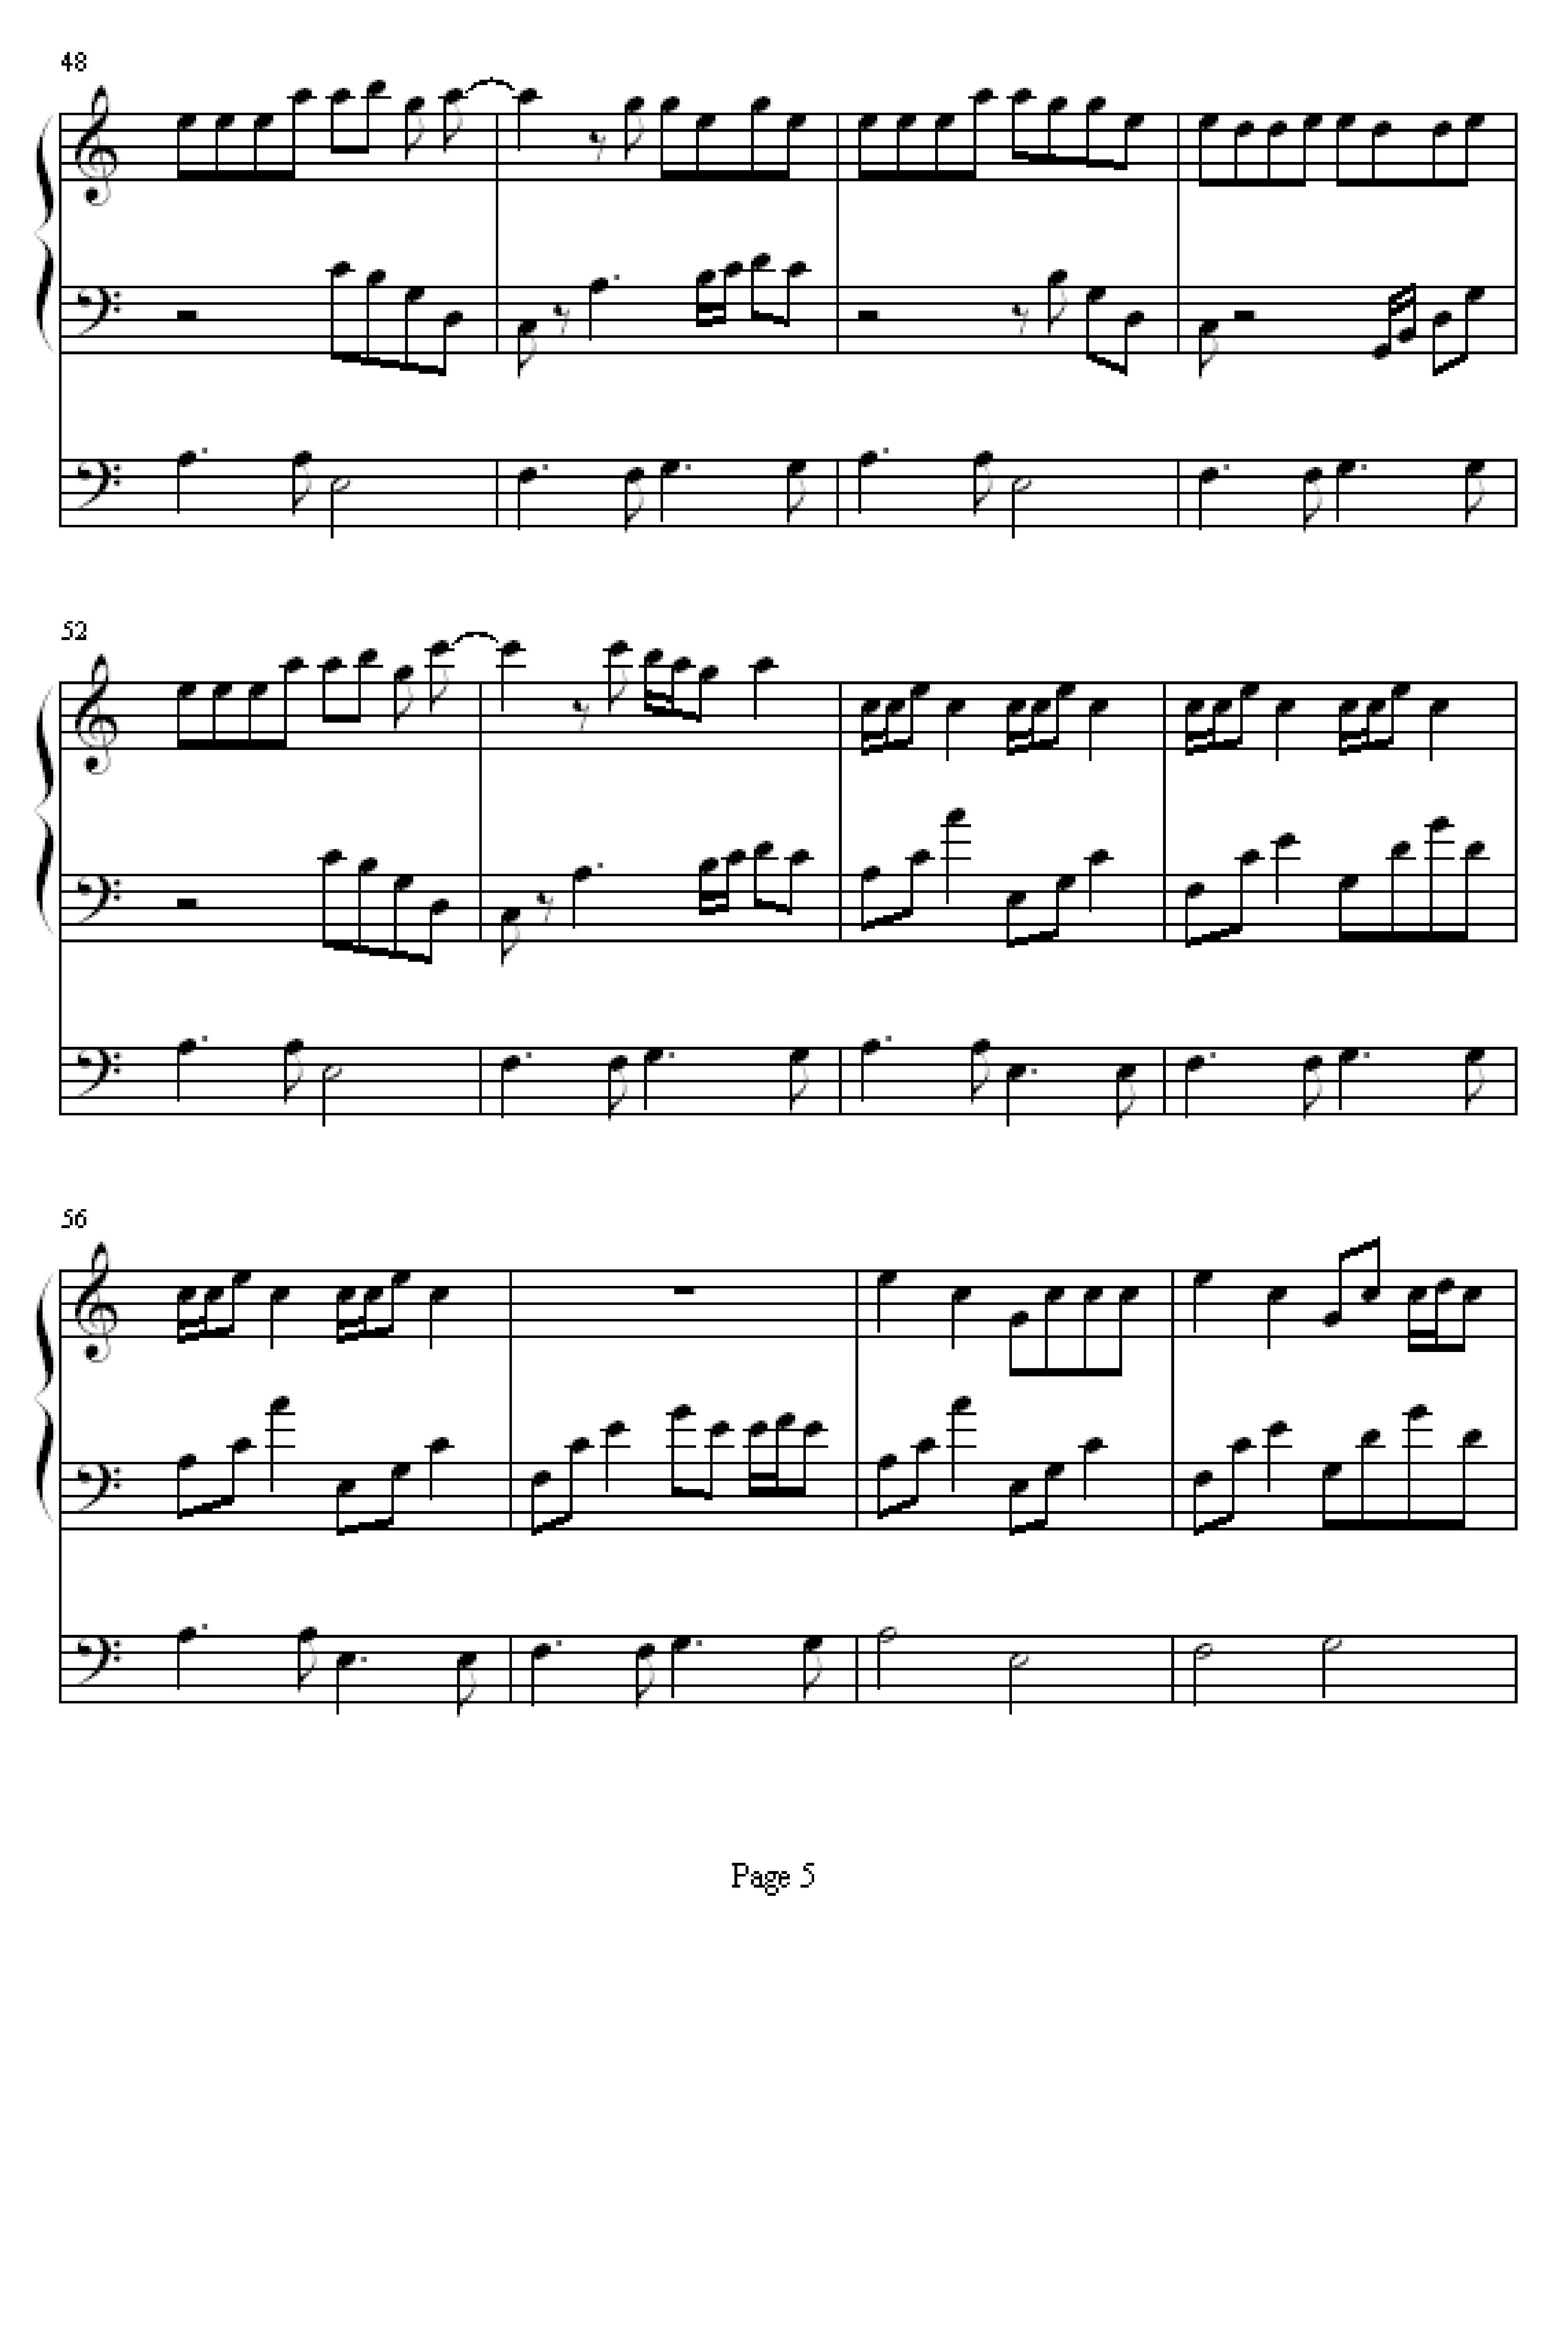 48
52
56
Page 5